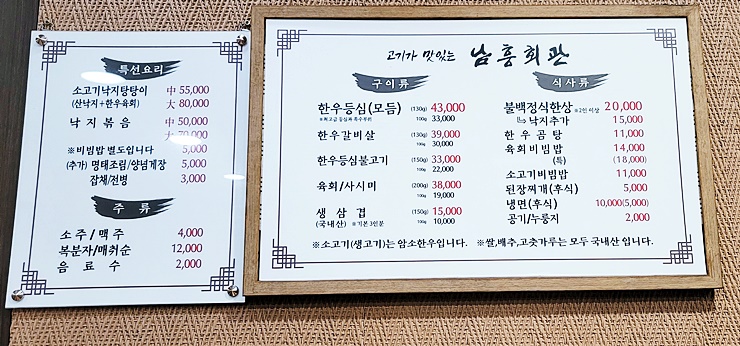 특선요리
소고기낙지탕탕이 中 55,000
(산낙지+한우육회) 大 80,000
낙지볶음 中 50,000
大 70,000
※비빔밥 별도입니다 5,000
(추가) 명태조림/양념게장 5,000
잡채/전병 3,000
주 류
소주/맥주 4,000
복분자/매취순 12,000
음료수 2,000
고기가 맛있는 남흥회관
구이류
한우등심(모듬) (130g) 43,000
※최고급 등심과 특수부위 100g 33,000
한우갈비살 (130g) 39,000
100g 30,000
한우등심불고기 (150g) 33,000
100g 22,000
육회/사시미 (200g) 38,000
100g 19,000
생삼겹 (150g) 15,000
(국내산) ※기본 3인분 100g 10,000
식사류
불백정식한상 ※2인 이상 20,000
낙지추가 15,000
한우곰탕 11,000
육회비빔밥 14,000
(특) (18,000)
소고기비빔밥 11,000
된장찌개(후식) 5,000
냉면(후식) 10,000(5,000)
공기/누룽지 2,000
※소고기(생고기)는 암소한우입니다. ※쌀,배추,고춧가루는 모두 국내산 입니다.